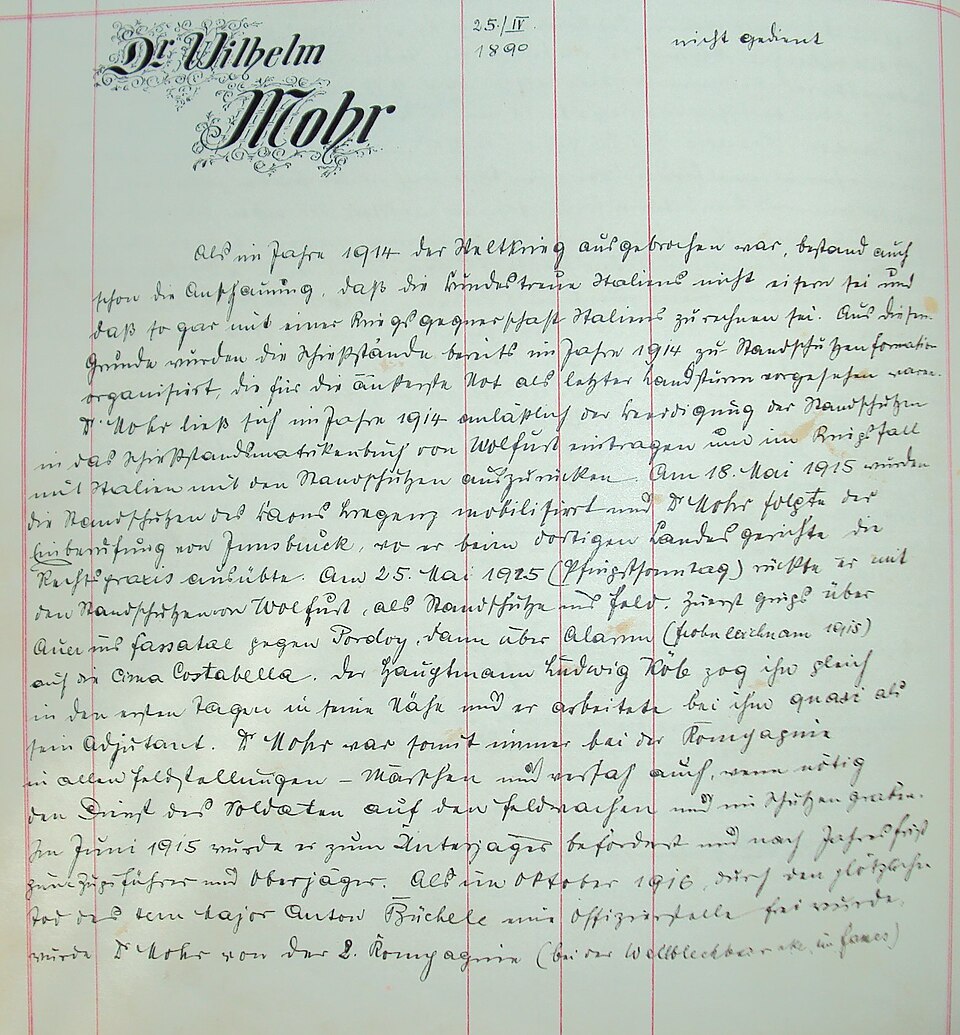 Dr Wilhelm
Mohr
25./IV.
1890
nicht gedient
Als im Jahre 1914 der Weltkrieg ausgebrochen war, bestand auch
schon die Anschauung, daß die Bundestreue Italiens nicht eisern sei und
daß sogar mit einer Kriegsgegnerschaft Italiens zu rechnen sei. Aus diesem
Grunde wurden die Schießstände bereits im Jahre 1914 zu Standschützenformation
organisiert, die für die äußerste Not als letzter Landsturm vorgesehen waren.
Dr Mohr ließ sich im Jahre 1914 anläßlich der Beeidigung der Standschützen
in das Schießstandsmatrikenbuch von Wolfurt eintragen um im Kriegsfall
mit Italien mit den Standschützen auszurücken. Am 18. Mai 1915 wurden
die Standschützen des Baons Bregenz mobilisiert und Dr Mohr folgte der
Einberufung von Innsbruck, wo er beim dortigen Landesgerichte die
Rechtspraxis ausübte. Am 25. Mai 1915 (Pfingstsonntag) rückte er mit
den Standschützen von Wolfurt, als Standschütze ins Feld. Zuerst gings über
Auer ins Fassatal gegen Pordoy, dann über Alarm (Frohnleichnam 1915)
auf die Cima Costabella. Der Hauptmann Ludwig Köb zog ihn gleich
in den ersten Tagen in seine Nähe und er arbeitete bei ihm quasi als
sein Adjutant. Dr Mohr war somit immer bei der Kompagnie
in allen Feldstellungen – Märschen und versah auch, wenn nötig
den Dienst des Soldaten auf den Feldwachen und im Schützengraben.
Im Juni 1915 wurde er zum Unterjäger befördert und nach Jahresfrist
zum Zugsführer und Oberjäger. Als im Oktober 1916, durch den plötzlichen
Tod des Major Anton Büchele eine Offiziersstelle frei wurde,
wurde Dr Mohr von der 2. Kompagnie (bei der Wellblechbaracke in Fanes)